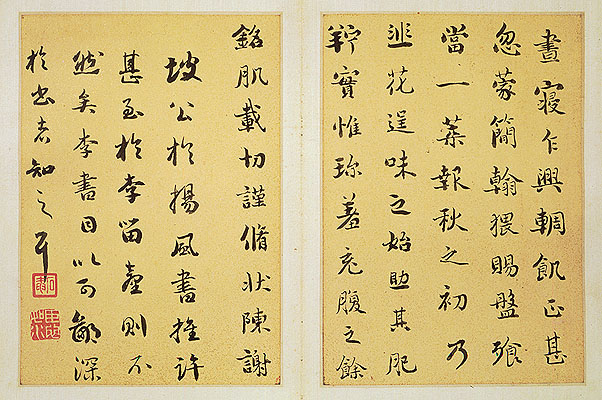 晝寢乍興輖飢正甚
忽蒙簡翰猥賜盤飧
當一葉報秋之初乃
韭花逞味之始助其肥
羜實惟珍羞充腹之餘
銘肌載切謹脩狀陳謝
坡公於揚風書推許
甚至於李留臺則不
然矣李書以可深
於書者知之耳